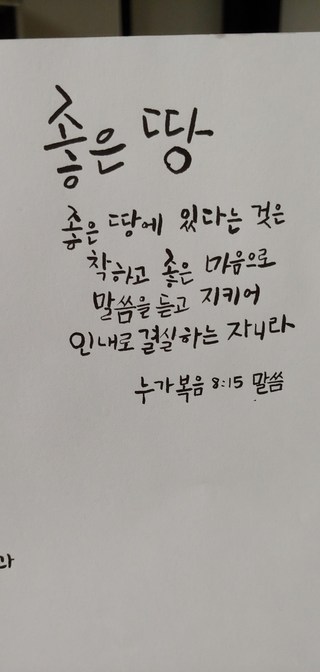 좋은 땅
좋은 땅에 있다는 것은
착하고 좋은 마음으로
말씀을 듣고 지키어
인내로 결실하는 자니라
누가복음 8:15 말씀
과